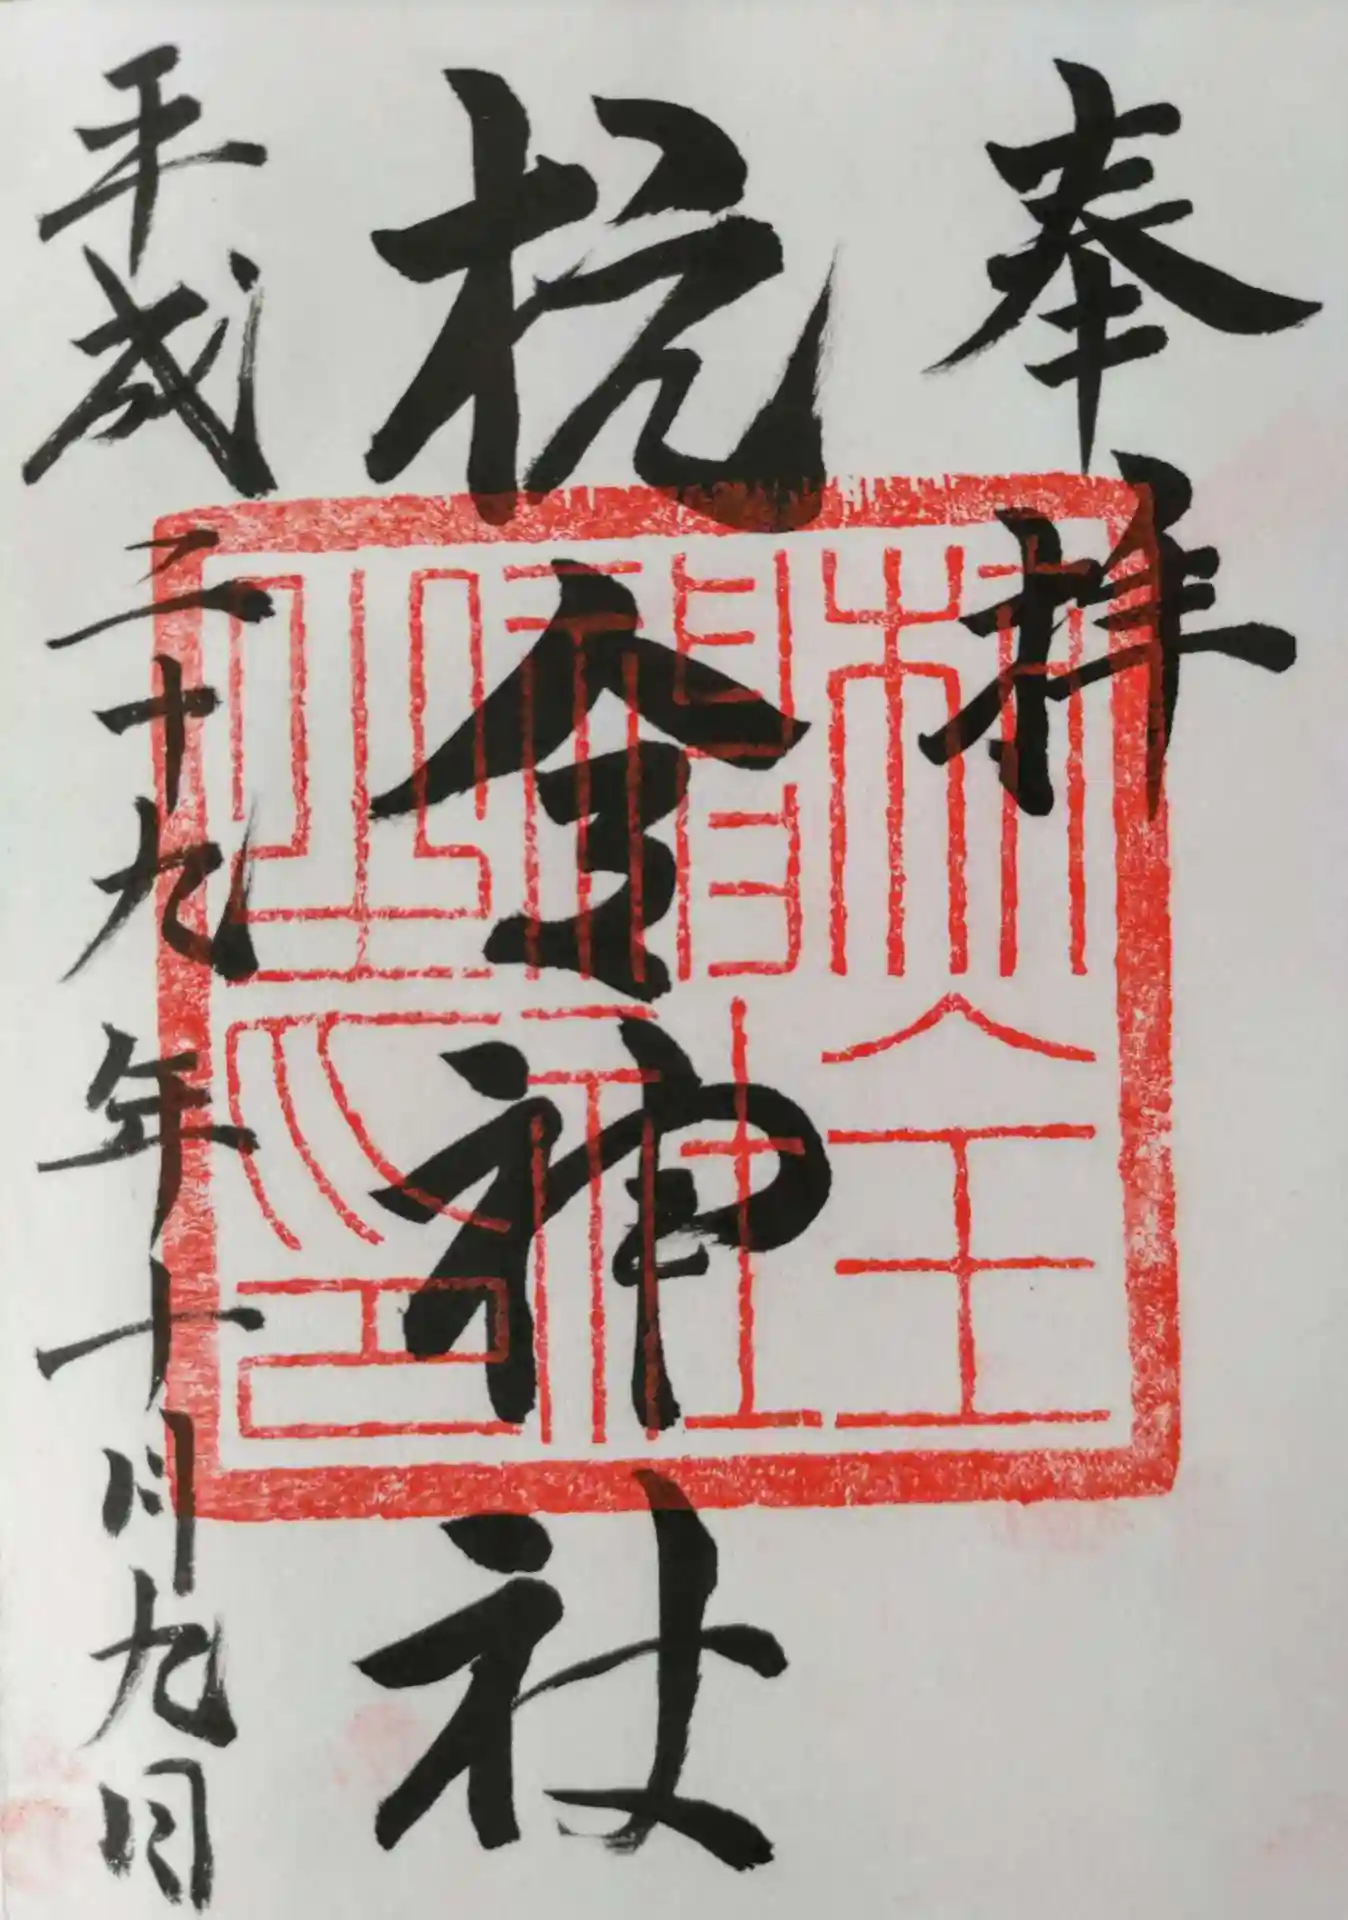 奉拝
杭全神社
平成二十九年十月九日
杭全
神社
之印